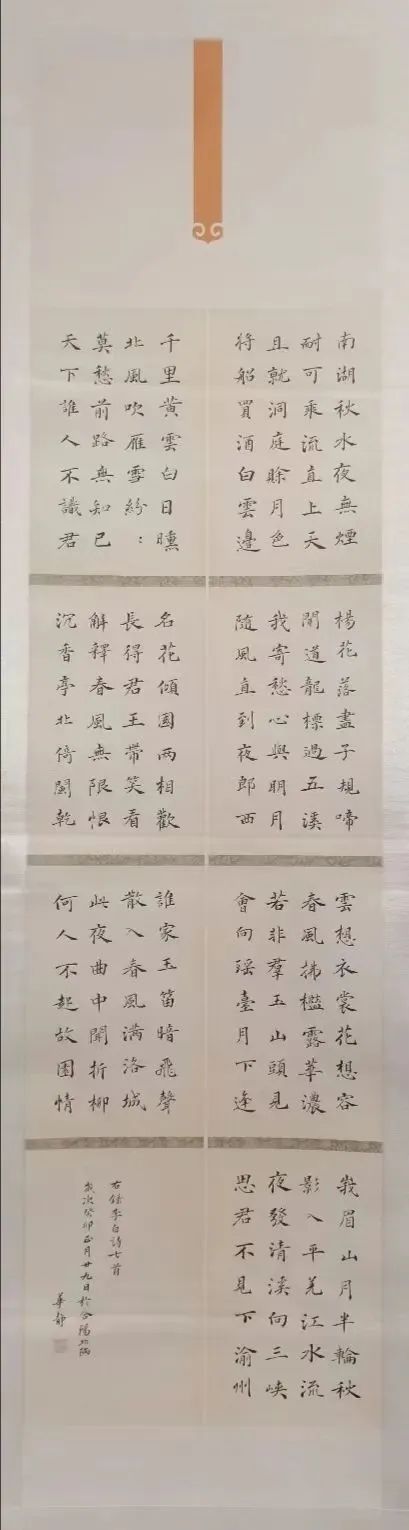 南湖秋水夜無煙
耐可乘流直上天
且就洞庭賒月色
將船買酒白雲邊
楊花落盡子規啼
聞道龍標過五溪
我寄愁心與明月
隨風直到夜郎西
雲想衣裳花想容
春風拂檻露華濃
若非羣玉山頭見
會向瑶臺月下逢
峩眉山月半輪秋
影入平羌江水流
夜發清溪向三峽
思君不見下渝州
千里黃雲白日曛
北風吹雁雪紛：
莫愁前路無知己
天下誰人不識君
名花傾國兩相歡
長得君王帶笑看
解釋春風無限恨
沉香亭北倚闌乾
誰家玉笛暗飛聲
散入春風滿洛城
此夜曲中聞折柳
何人不起故園情
右錄李白詩七首
歲次癸卯正月廿九日於合陽北
華靜